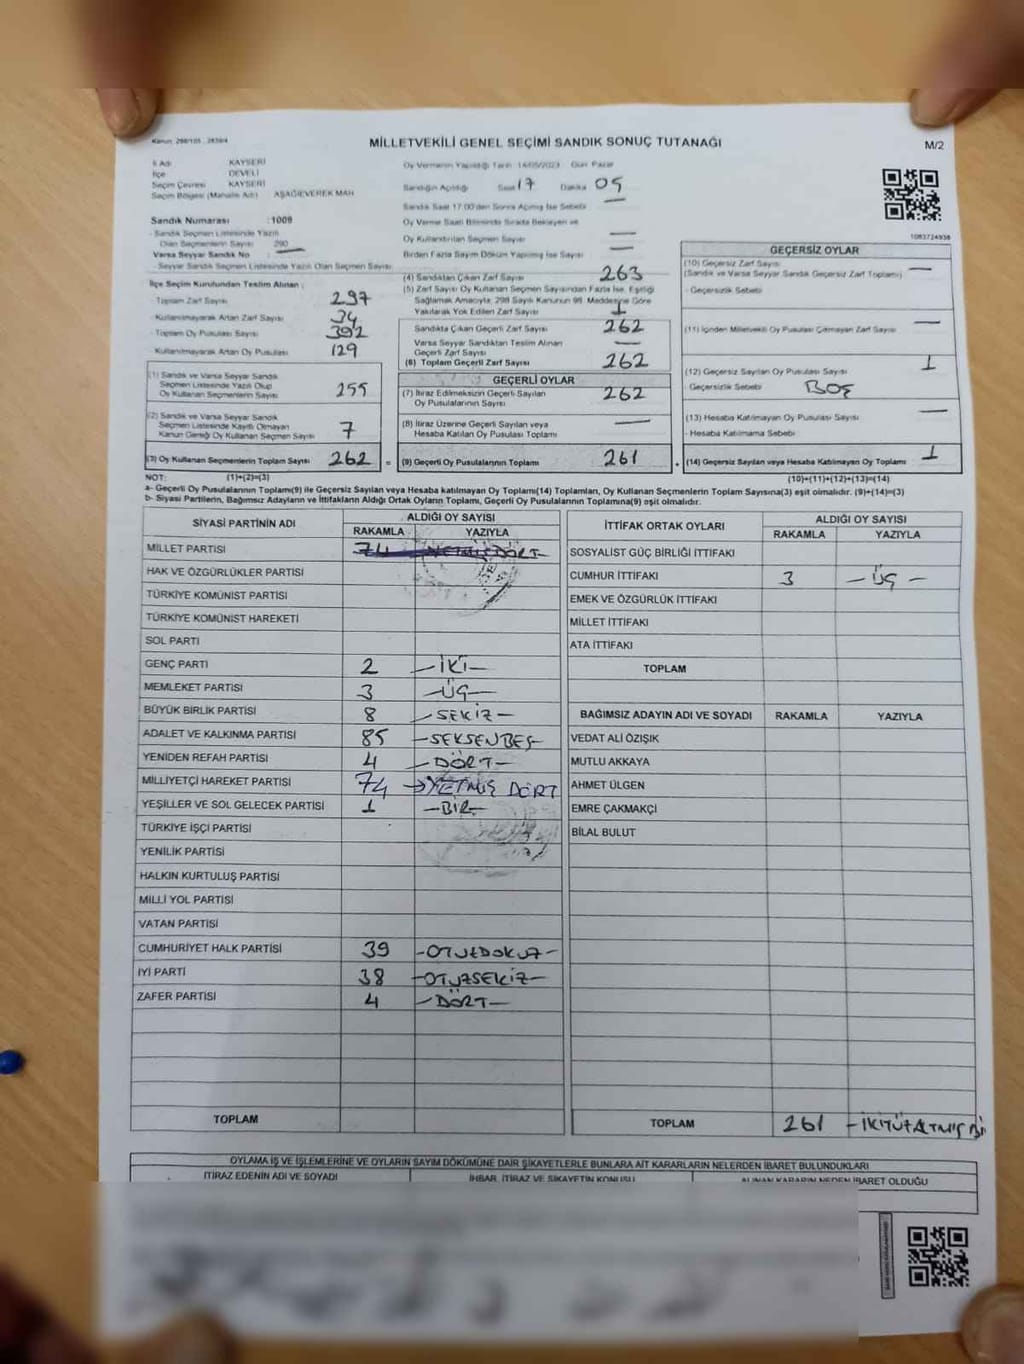 MİLLETVEKİLİ GENEL SEÇİMİ SANDIK SONUÇ TUTANAĞI
M/2
İl Adı KAYSERİ
İlçe DEVELİ
Seçim Çevresi KAYSERİ
Seçim Bölgesi (Mahalle Adı) AŞAĞIEVEREK MAH
Sandık Numarası :1009
Sandık Seçmen Listesinde Yazılı
Olan Seçmenlerin Sayısı 290
Varsa Seyyar Sandık No
Seyyar Sandık Seçmen Listesinde Yazılı Olan Seçmen Sayısı
İlçe Seçim Kurulundan Teslim Alınan :
Toplam Zarf Sayısı 297
Kullanılmayarak Artan Zarf Sayısı 34
Toplam Oy Pusulası Sayısı 392
Kullanılmayarak Artan Oy Pusulası 129
(1) Sandık ve Varsa Seyyar Sandık
Seçmen Listesinde Yazılı Olup
Oy Kullanan Seçmenlerin Sayısı 255
(2) Sandık ve Varsa Seyyar Sandık
Seçmen Listesinde Kayıtlı Olmayan
Kanun Gereği Oy Kullanan Seçmen Sayısı 7
(3) Oy Kullanan Seçmenlerin Toplam Sayısı 262 =
Oy Vermenin Yapıldığı Tarih 14/05/2023 Gün Pazar
Sandığın Açıldığı Saat 17 Dakika 05
Sandık Saat 17.00'den Sonra Açılmış İse Sebebi —
Oy Verme Saati Bitiminde Sırada Bekleyen ve
Oy Kullandırılan Seçmen Sayısı —
Birden Fazla Sayım Döküm Yapılmış İse Sayısı —
(4) Sandıktan Çıkan Zarf Sayısı 263
(5) Zarf Sayısı Oy Kullanan Seçmen Sayısından Fazla İse, Eşitliği
Sağlamak Amacıyla, 298 Sayılı Kanunun 98. Maddesine Göre
Yakılarak Yok Edilen Zarf Sayısı 1
Sandıkta Çıkan Geçerli Zarf Sayısı 262
Varsa Seyyar Sandıktan Teslim Alınan
Geçerli Zarf Sayısı —
(6) Toplam Geçerli Zarf Sayısı 262
GEÇERLİ OYLAR
(7) İtiraz Edilmeksizin Geçerli Sayılan
Oy Pusulalarının Sayısı 262
(8) İtiraz Üzerine Geçerli Sayılan veya
Hesaba Katılan Oy Pusulası Toplamı —
(9) Geçerli Oy Pusulalarının Toplamı 261 +
1083724938
GEÇERSİZ OYLAR
(10) Geçersiz Zarf Sayısı
(Sandık ve Varsa Seyyar Sandık Geçersiz Zarf Toplamı) —
- Geçersizlik Sebebi
(11) İçinden Milletvekili Oy Pusulası Çıkmayan Zarf Sayısı —
(12) Geçersiz Sayılan Oy Pusulası Sayısı 1
- Geçersizlik Sebebi BOŞ
(13) Hesaba Katılmayan Oy Pusulası Sayısı —
- Hesaba Katılmama Sebebi
(14) Geçersiz Sayılan veya Hesaba Katılmayan Oy Toplamı 1
NOT: (1)+(2)=(3) (10)+(11)+(12)+(13)=(14)
a- Geçerli Oy Pusulalarının Toplamı(9) ile Geçersiz Sayılan veya Hesaba katılmayan Oy Toplamı(14) Toplamları, Oy Kullanan Seçmenlerin Toplam Sayısına(3) eşit olmalıdır. (9)+(14)=(3)
b- Siyasi Partilerin, Bağımsız Adayların ve İttifakların Aldığı Oyların Toplamı, Geçerli Oy Pusulalarının Toplamına(9) eşit olmalıdır.
SİYASİ PARTİNİN ADI ALDIĞI OY SAYISI
RAKAMLA YAZIYLA
MİLLET PARTİSİ 74 YETMİŞDÖRT
HAK VE ÖZGÜRLÜKLER PARTİSİ
TÜRKİYE KOMÜNİST PARTİSİ
TÜRKİYE KOMÜNİST HAREKETİ
SOL PARTİ
GENÇ PARTİ 2 —İKİ—
MEMLEKET PARTİSİ 3 —ÜÇ—
BÜYÜK BİRLİK PARTİSİ 8 —SEKİZ—
ADALET VE KALKINMA PARTİSİ 85 —SEKSENBEŞ—
YENİDEN REFAH PARTİSİ 4 —DÖRT—
MİLLİYETÇİ HAREKET PARTİSİ 74 → YETMİŞ DÖRT
YEŞİLLER VE SOL GELECEK PARTİSİ 1 —BİR—
TÜRKİYE İŞÇİ PARTİSİ
YENİLİK PARTİSİ
HALKIN KURTULUŞ PARTİSİ
MİLLİ YOL PARTİSİ
VATAN PARTİSİ
CUMHURİYET HALK PARTİSİ 39 —OTUZDOKUZ—
İYİ PARTİ 38 —OTUZSEKİZ—
ZAFER PARTİSİ 4 —DÖRT—
TOPLAM
İTTİFAK ORTAK OYLARI ALDIĞI OY SAYISI
RAKAMLA YAZIYLA
SOSYALİST GÜÇ BİRLİĞİ İTTİFAKI
CUMHUR İTTİFAKI 3 —ÜÇ—
EMEK VE ÖZGÜRLÜK İTTİFAKI
MİLLET İTTİFAKI
ATA İTTİFAKI
TOPLAM
BAĞIMSIZ ADAYIN ADI VE SOYADI RAKAMLA YAZIYLA
VEDAT ALİ ÖZIŞIK
MUTLU AKKAYA
AHMET ÜLGEN
EMRE ÇAKMAKÇİ
BİLAL BULUT
TOPLAM 261 —İKİYÜZALTMIŞ Bİ
OYLAMA İŞ VE İŞLEMLERİNE VE OYLARIN SAYIM DÖKÜMÜNE DAİR ŞİKAYETLERLE BUNLARA AİT KARARLARIN NELERDEN İBARET BULUNDUKLARI
İTİRAZ EDENİN ADI VE SOYADI İHBAR, İTİRAZ VE ŞİKAYETİN KONUSU ALINAN KARARIN NEDEN İBARET OLDUĞU